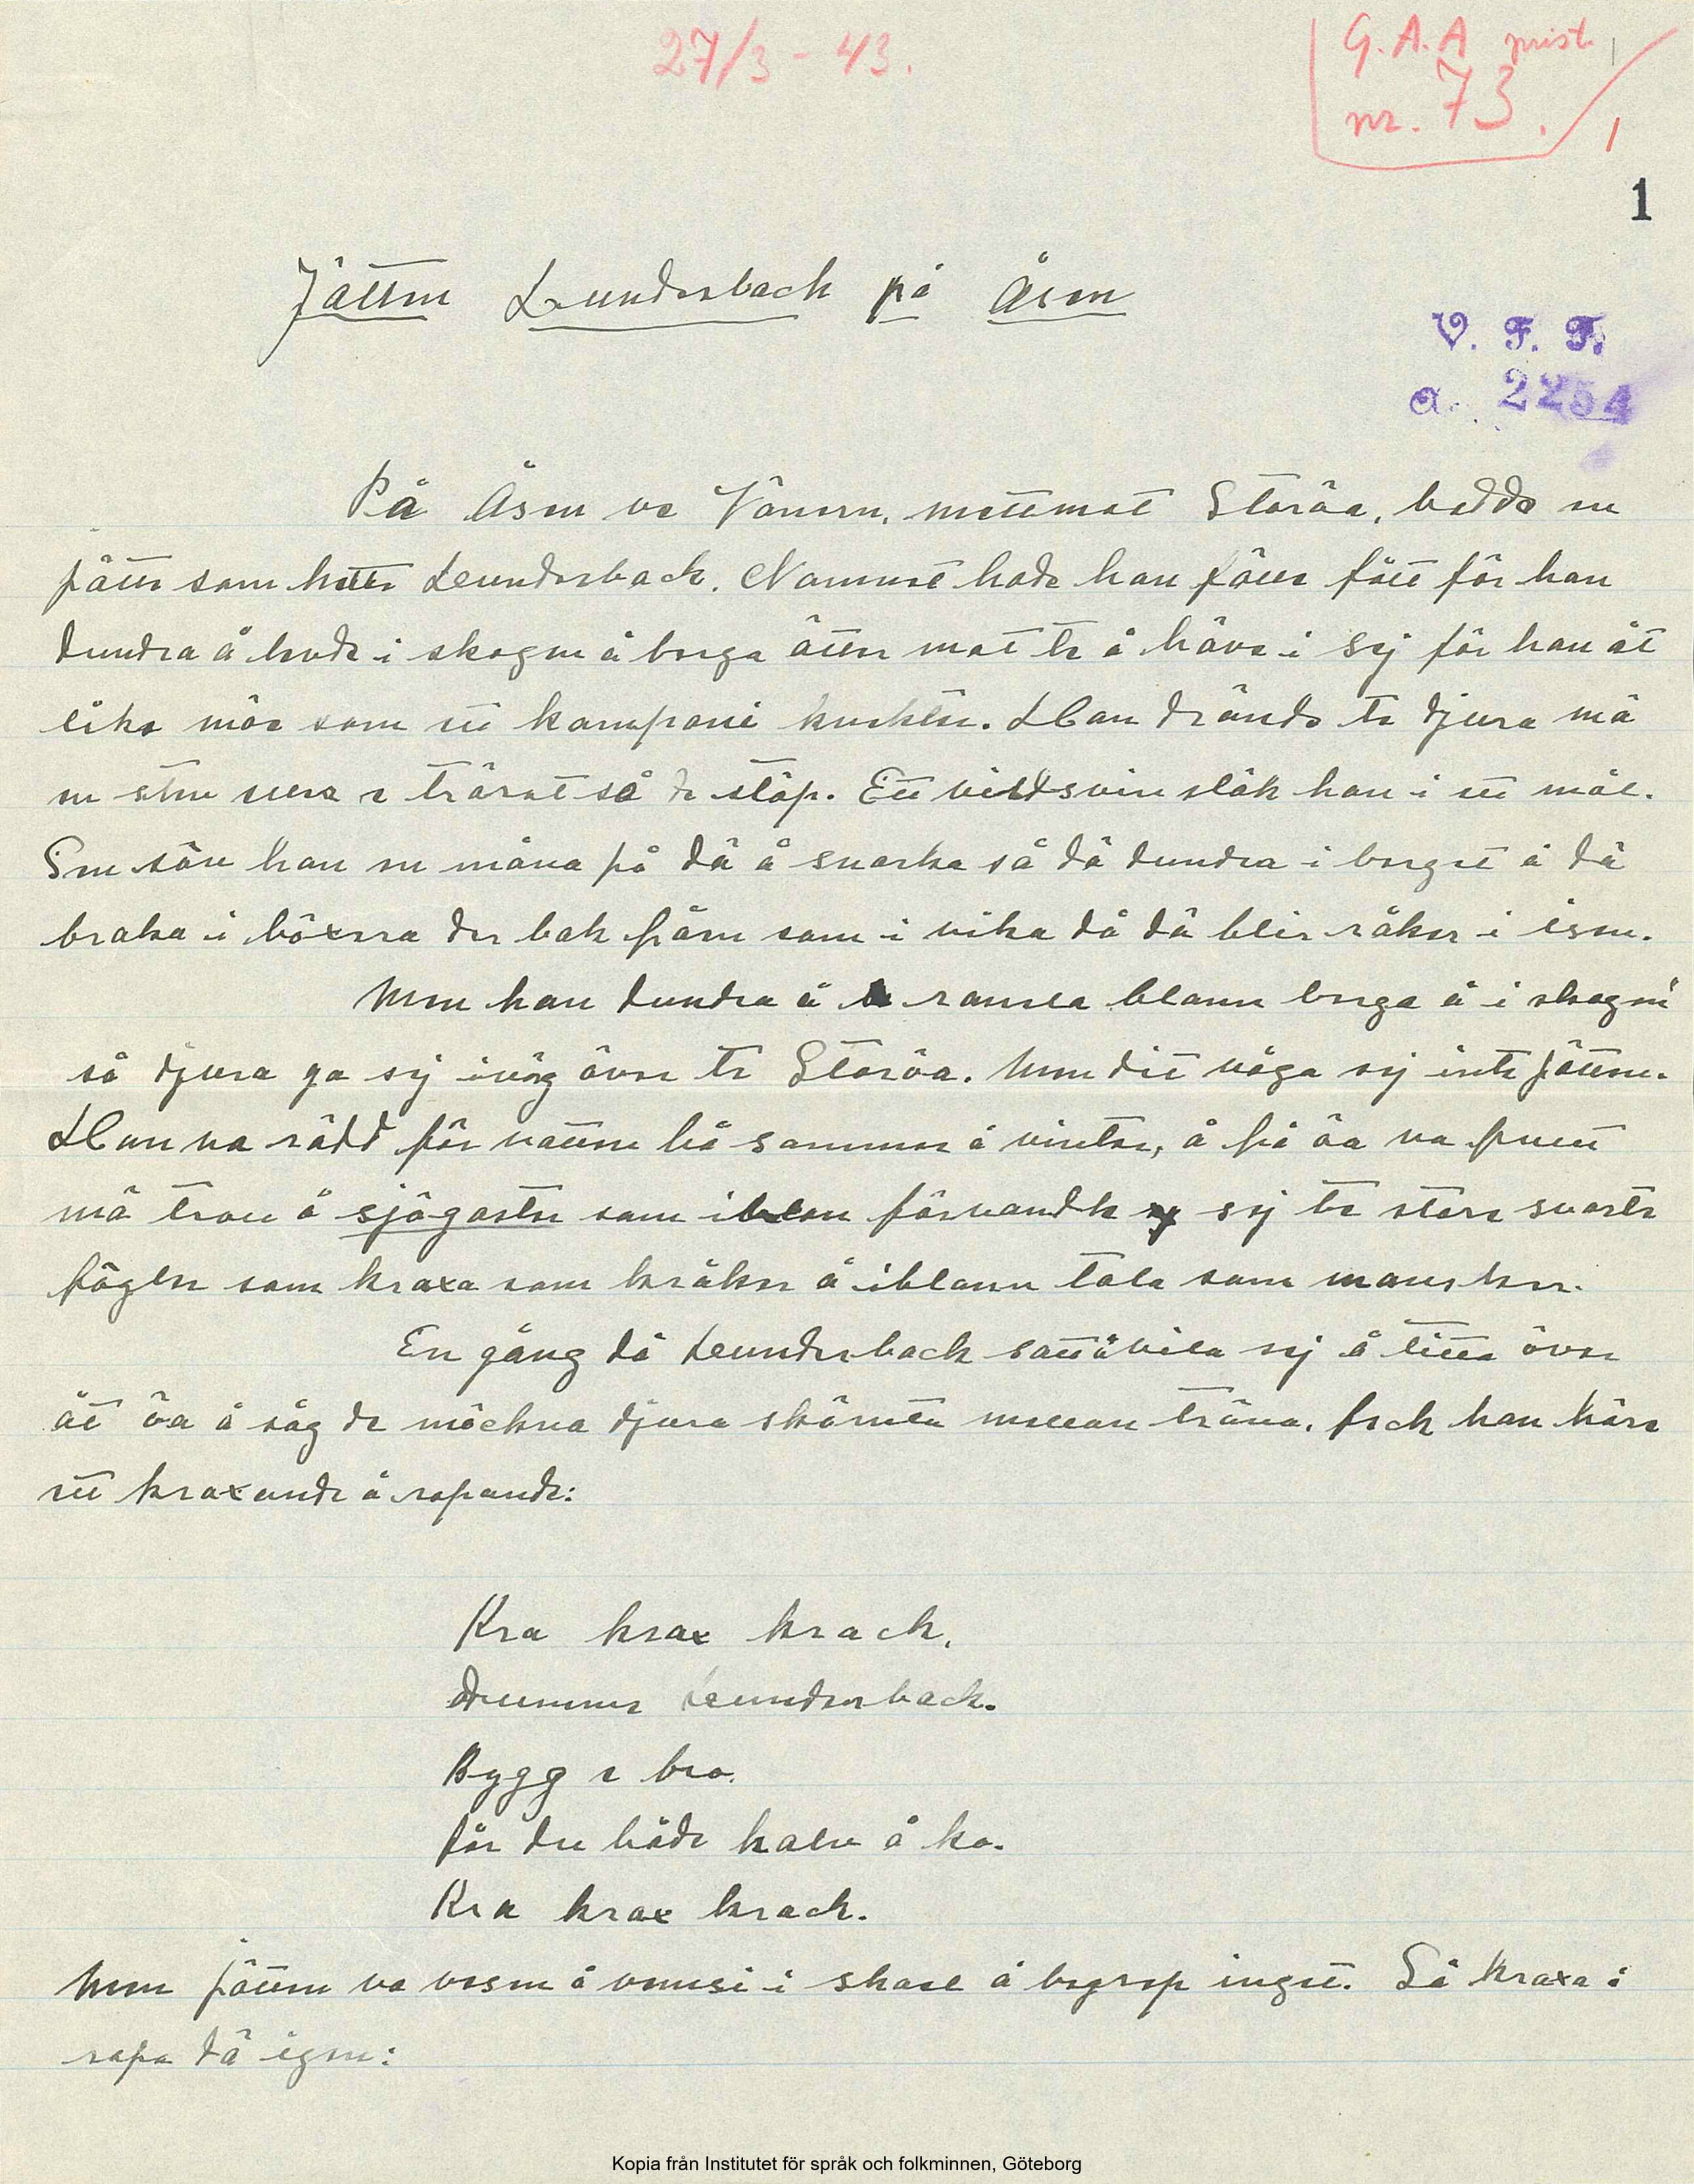 27/3 - 43.
G. A. A prist.
nr. 73. 1
1
Jätten Lunderback på Åsen
V. F. F.
a. 2254
På Åsen ve Vänern, mettemot Storöa, bodde en
jätte som hette Lunderback. Namnet hade han fått för han
dundra å levde i skogen å berga ätter mat te å häva i sej för han åt
lika möe som ett kompani knekter. Han drände te djura mä
en sten eller e träret så de stöp. Ett vildsvin slök han i ett mål.
Sen såv han en måna på dä å snarka så dä dundra i berget å dä
braka i böxera der bak främ som i vika då dä blir råker i isen.
Men han dundra å ramla blann berga å i skogen
så djura ga sej iväg över te Storöa. Men dit våga sej inte jätten.
Han va rädd för vattne bå sommer å vinter, å på öa va fullt
mä troll å sjögaster som iblan förvandle sej te store svarte
fögler som kraxa som kråker å iblann tala som mansker.
En gång då Lunderback satt å vila sej å titta över
åt öa å såg de möckna djura skömta mellan träna, feck han höre
ett kraxande å ropande:
Kra krax krack,
Drummel Lunderback.
Bygg e bro,
får du både kalv å ko.
Kra krax krack.
Men jätten va vesen å vemsi i skall å begrep inget. Så kraxa å
ropa dä igen:
Kopia från Institutet för språk och folkminnen, Göteborg